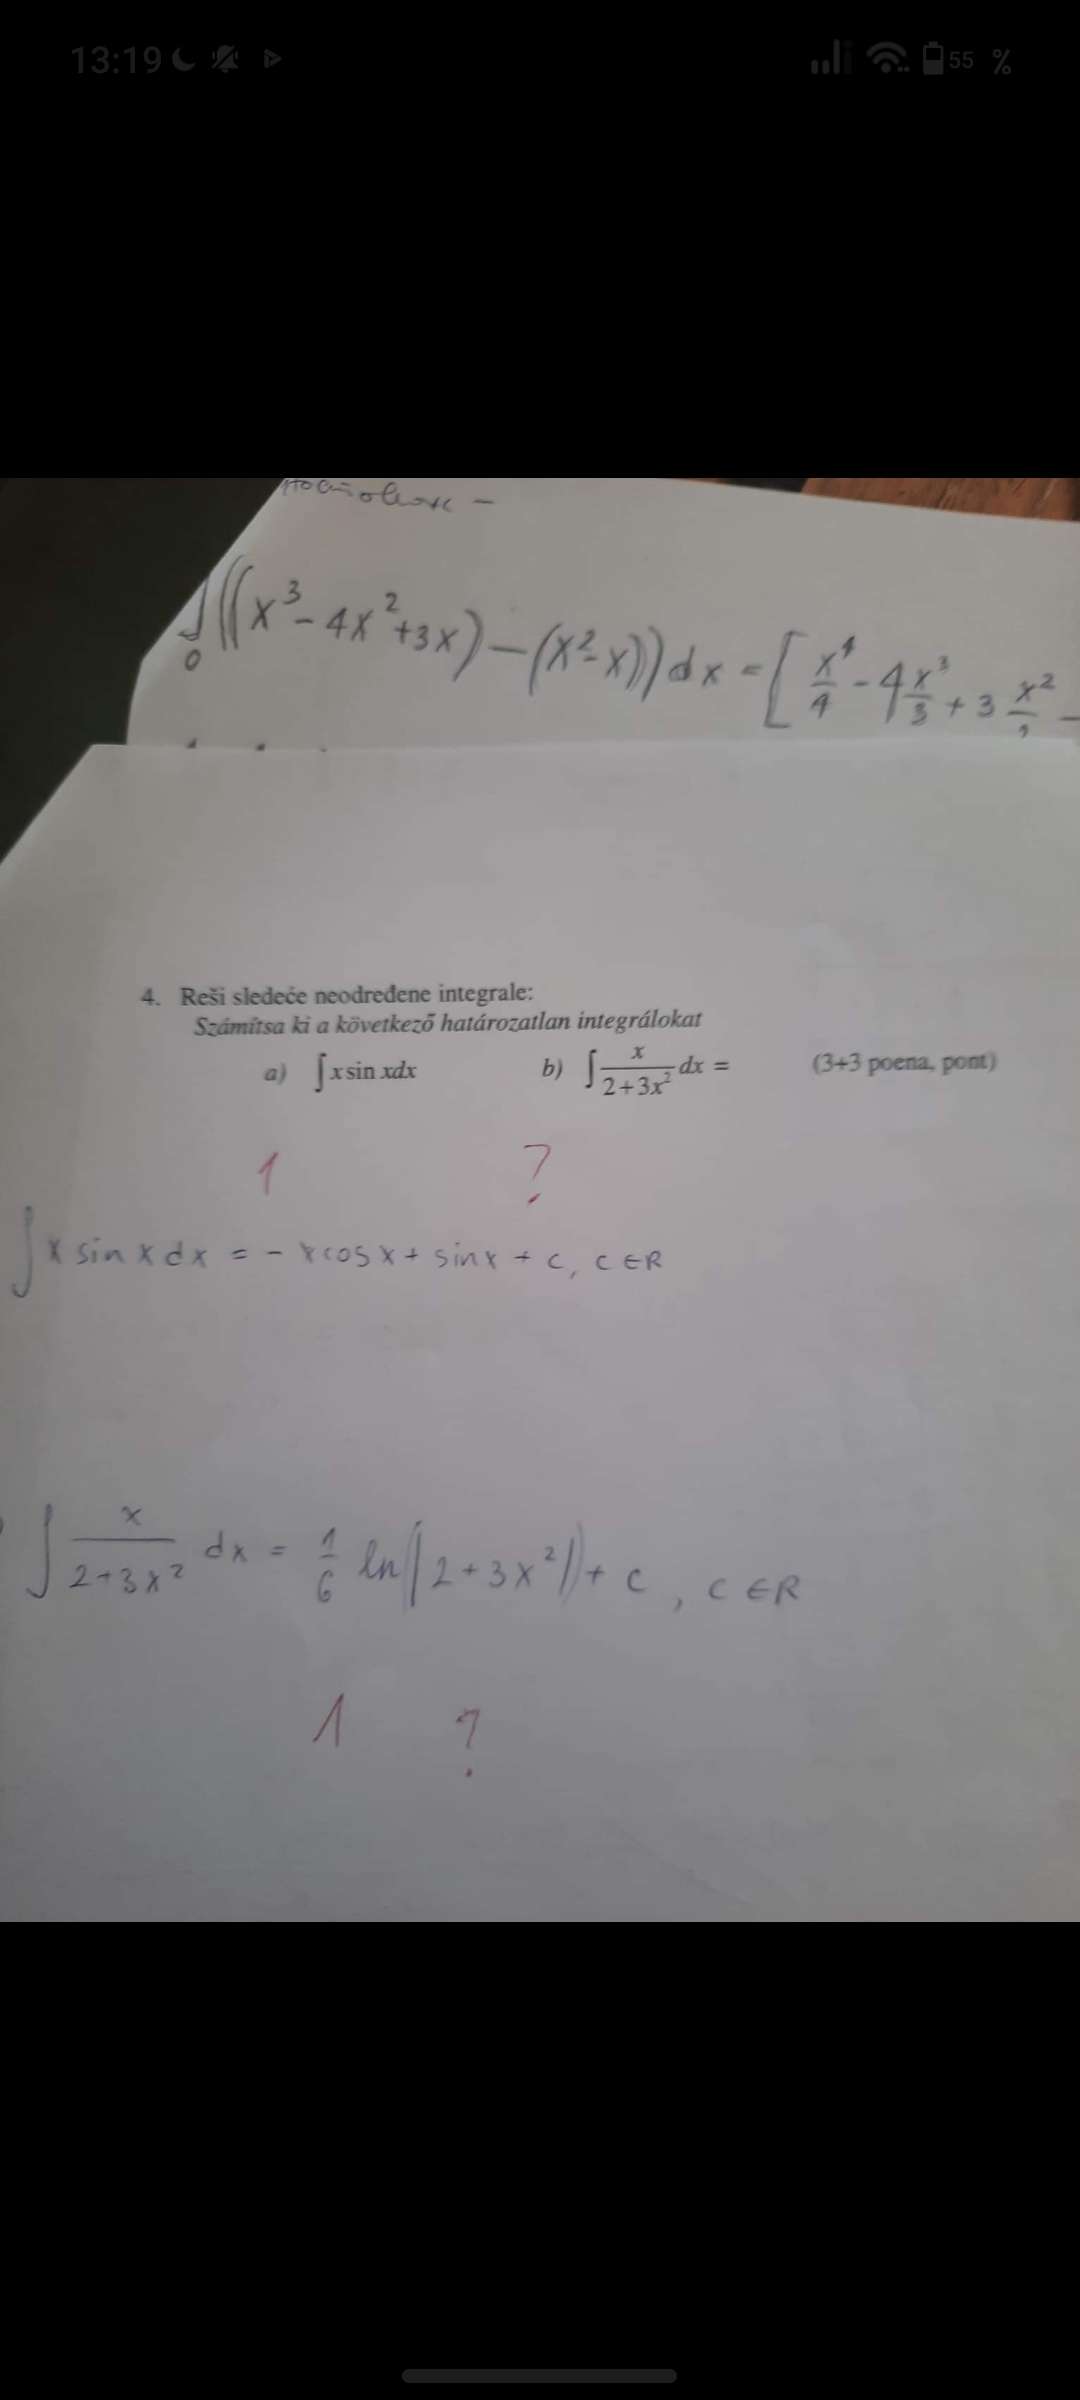 13:19 55 %
∫₀((x³-4x²+3x)-(x²-x))dx=[x⁴/4-4x³/3+3x²/2-
4. Reši sledeće neodređene integrale:
Számítsa ki a következő határozatlan integrálokat
a) ∫x sin xdx b) ∫x/(2+3x²)dx = (3+3 poena, pont)
1 ?
∫x sin x dx = - x cos x + sin x + c, c∈R
∫x/(2+3x²) dx = 1/6 ln(|2+3x²|)+c, c∈R
1 ?